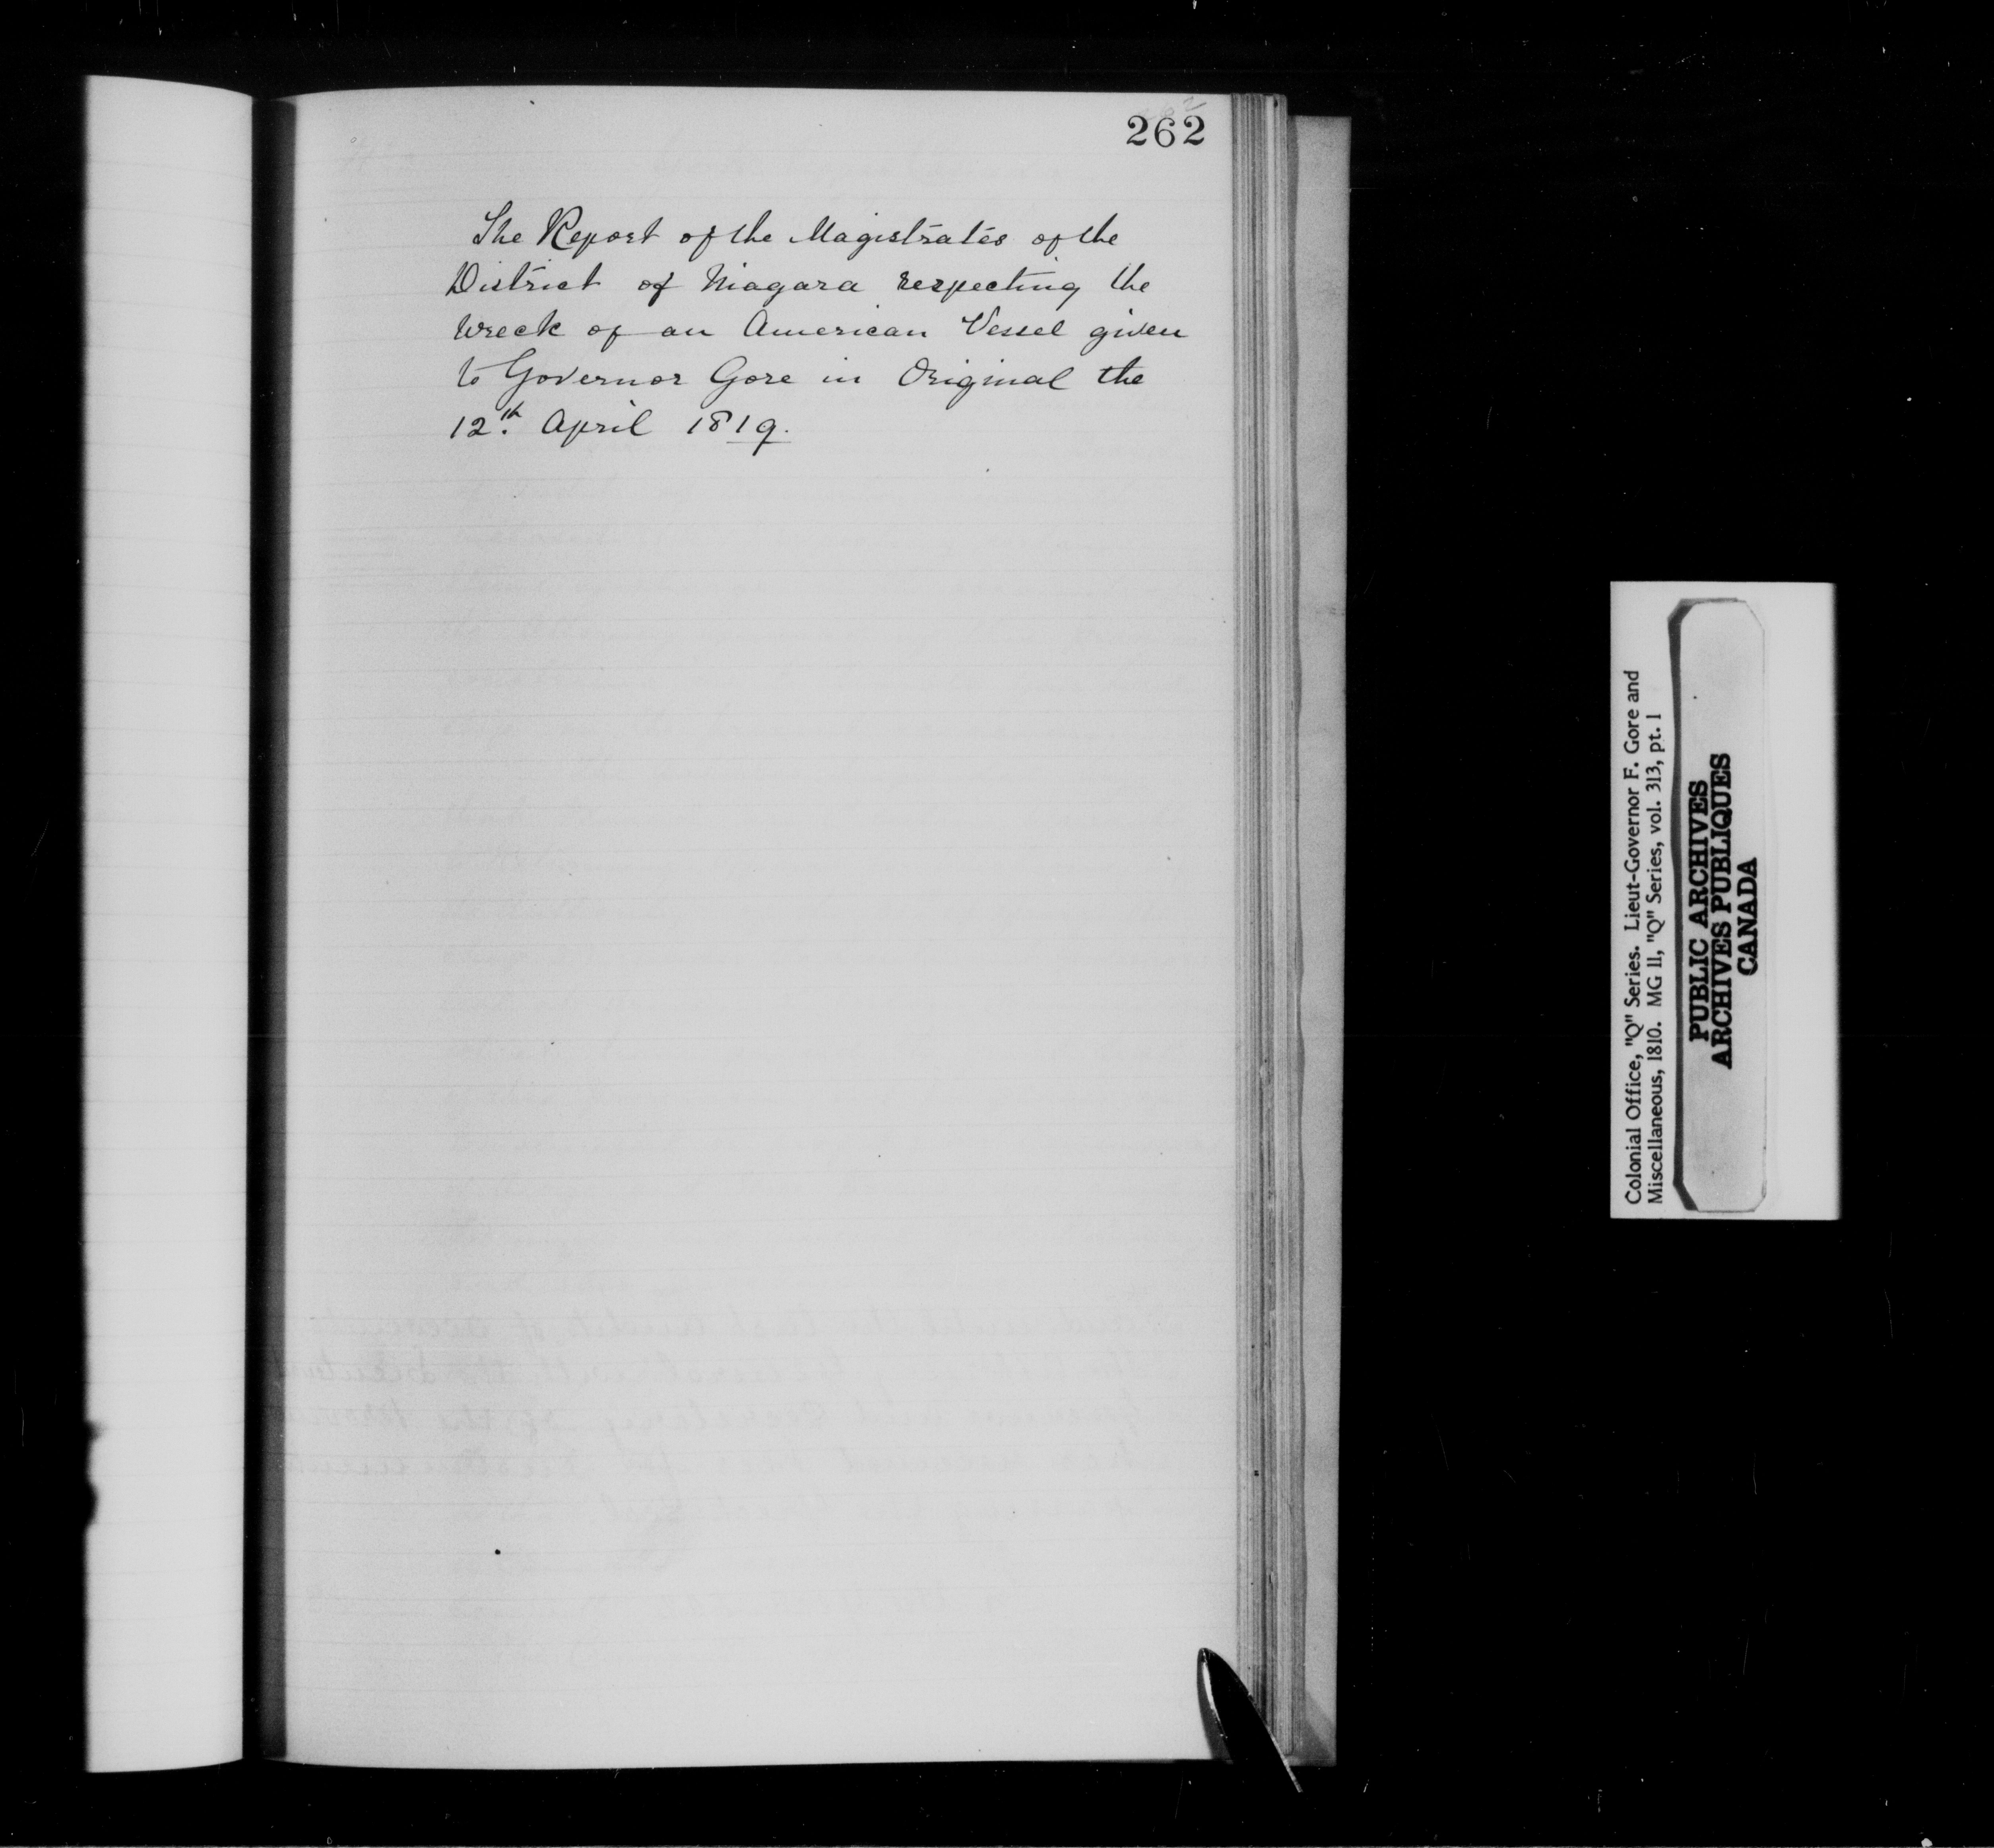 262
The Report of the Magistrates of the
District of Niagara respecting the
Wreck of an American Vessel given
to Governor Gore in Original the
12th. April 1819.
Colonial Office, "Q" Series. Lieut-Governor F. Gore and
Miscellaneous, 1810. MG 11, "Q" Series, vol. 313, pt. 1
PUBLIC ARCHIVES
ARCHIVES PUBLIQUES
CANADA